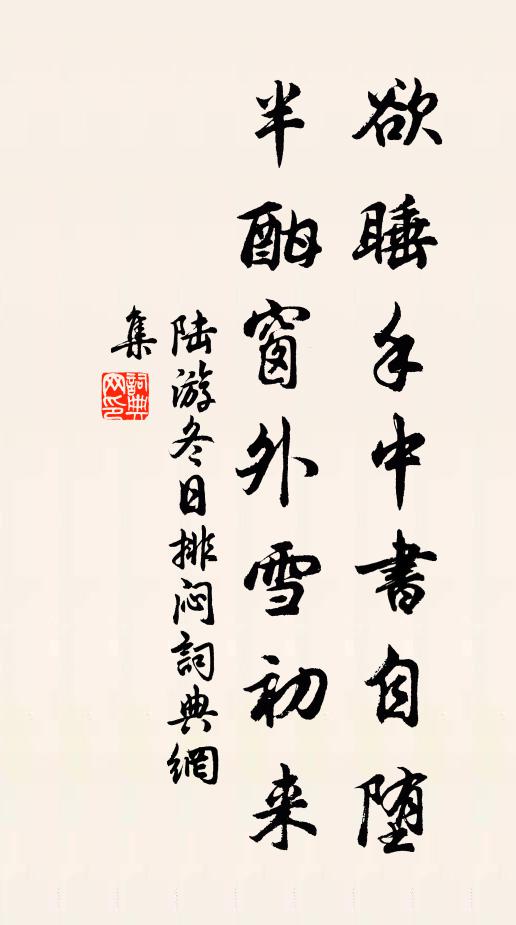 欲睡手中書自堕
半酣窗外雪初来
陆游冬日排闷詞典網
集
詞典網印